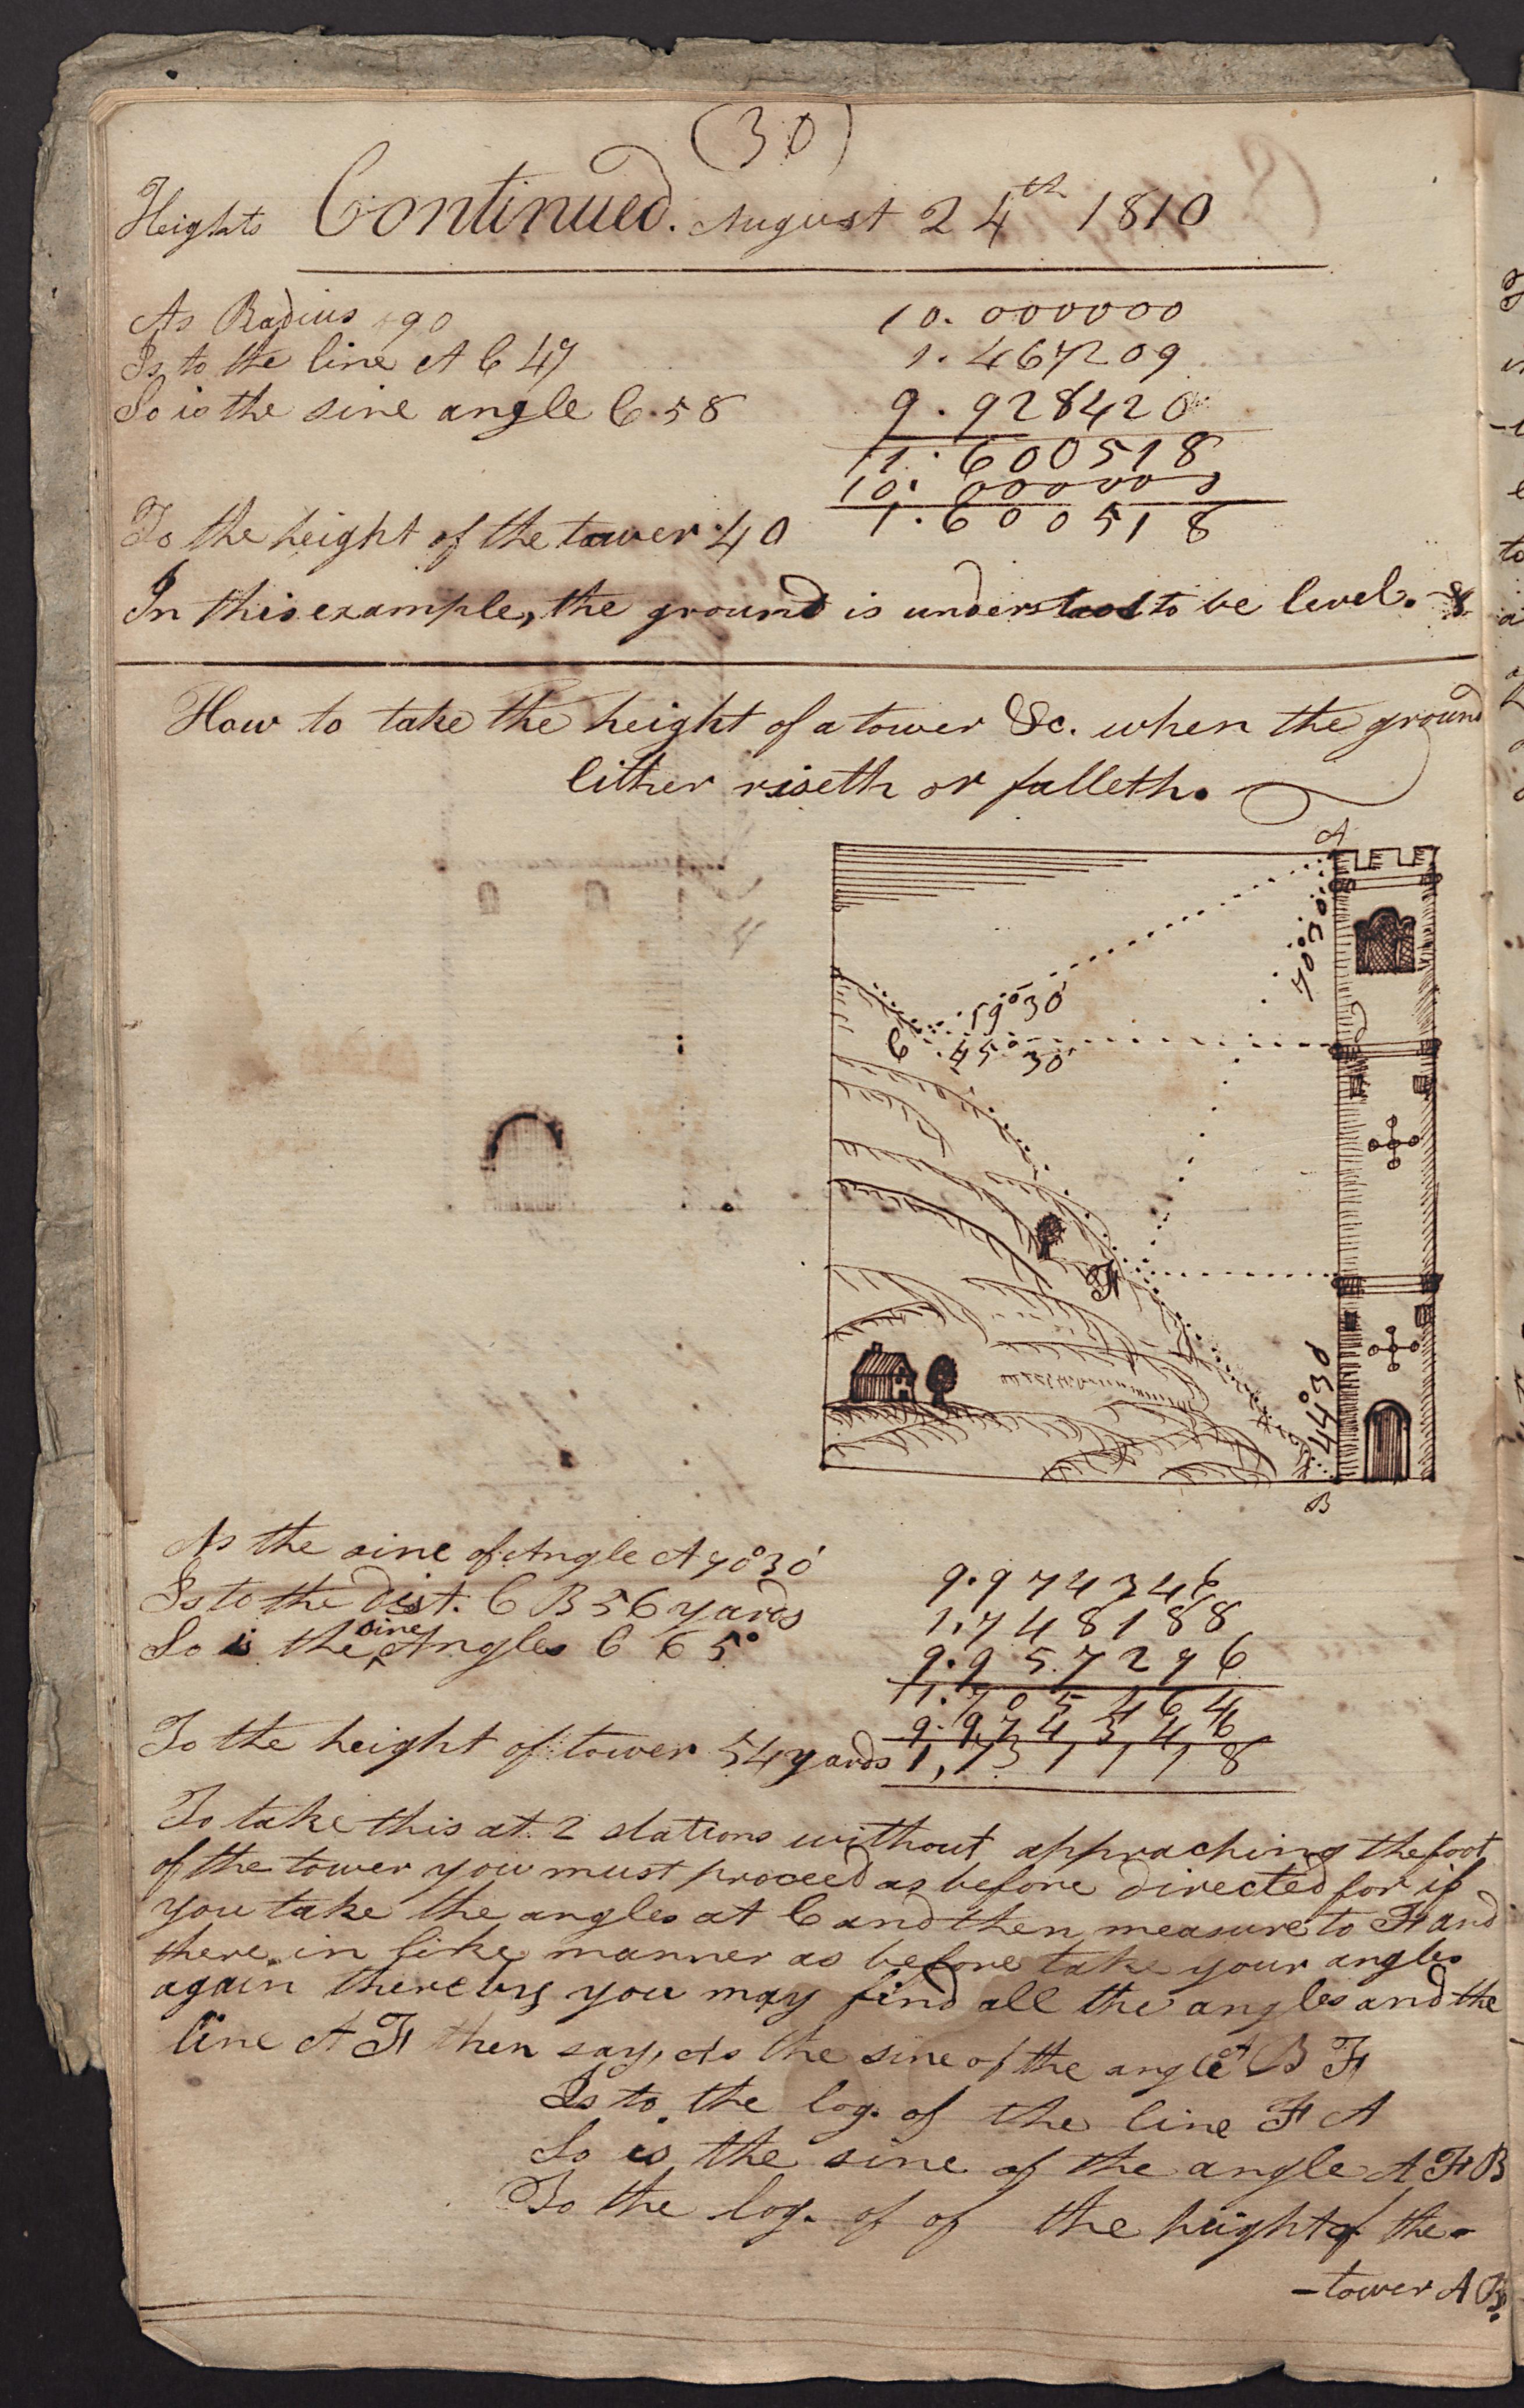 (30)
Heights Continued. August 24th 1810
As Radius 90 10.000000
Is to the line A C 47 1.467209
So is the sine angle C.58 9.928420
11.600518
10.000000
To the height of the tower.40 1.600518
In this example, the ground is understood to be level.
How to take the height of a tower &c. when the ground
Either riseth or falleth.
A
70°30
19°30'
C 45°30'
F
44°30
B
As the sine of Angle A 70°30' 9.974346
Is to the dist. C B 56 yards 1,748188
So is the sine Angles C 65° 9.957276
11.705464
9.974346
To the height of tower 54 yards 1,731118
To take this at 2 stations without appraching the foot
of the tower you must proceed as before directed for if
you take the angles at C and then measure to F and
there in like manner as before take your angles
again thereby you may find all the angles and the
line A F then say, As the sine of the angle B F
Is to the log. of the line F A
So is the sine of the angle A F B
To the log. of of the hight of the-
-tower A B.